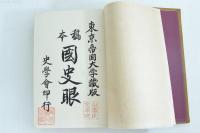 東京帝国大学藏版
稿本 國史眼
史學會印行